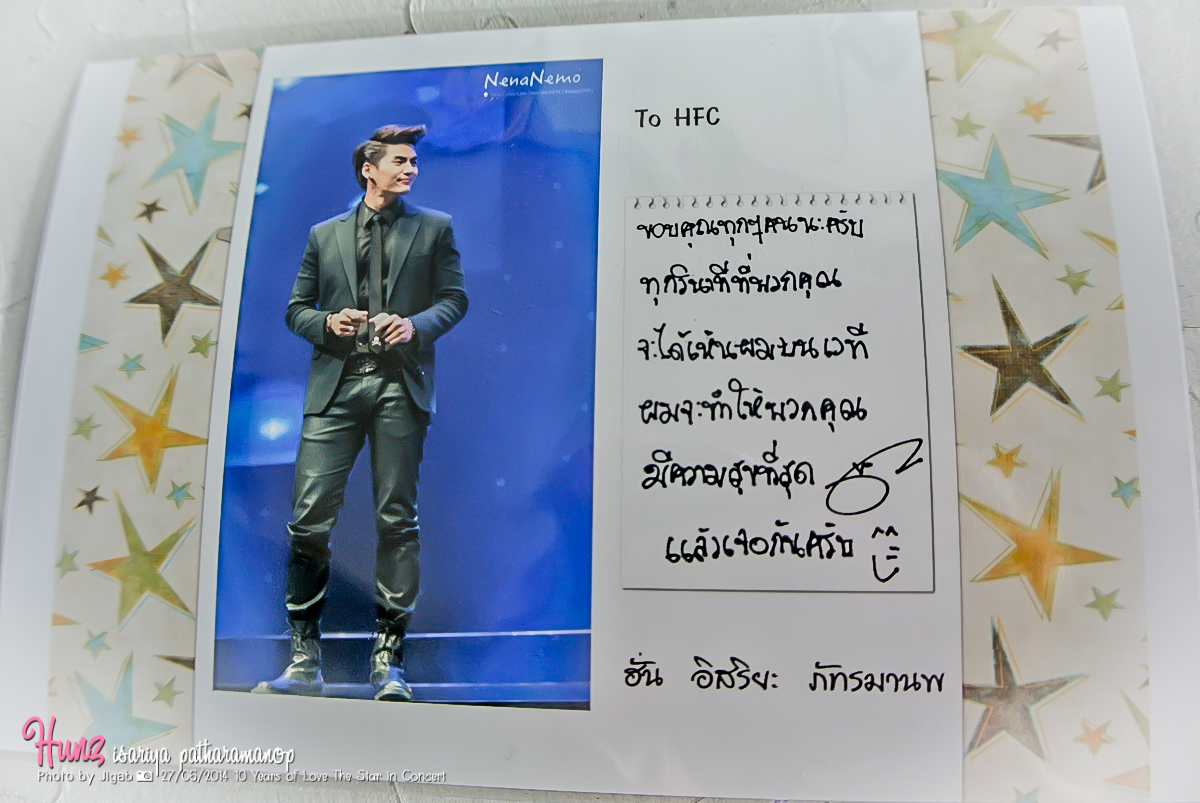 NenaNemo
To HFC
ขอบคุณทุกๆคนนะครับ
ทุกวินาทีที่พวกคุณ
จะได้เห็นผมบนเวที
ผมจะทำให้พวกคุณ
มีความสุขที่สุด
แล้วเจอกันครับ
ฮั่น อิสริยะ ภัทรมานพ
Hunz isariya patharamanop
Photo by Jigab 27/06/2014 10 Years of Love The Star in Concert